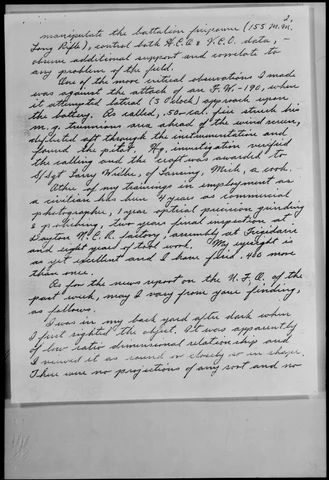 2.
manipulate the battalion firepower (155 M.M.
Long Rifle), control both H.C.O. & V.C.O. data, –
observe additional support and correlate to
any problem of the field.
One of the more critical observations I made
was against the attack of an F.W.-190, when
it attempted lateral (3 O'clock) approach upon
the battery. As called, .50-cal. fire struck his
m.g. trunnion area ahead of the wind screen,
deflected aft through the instrumentation and
found the pilot. Hq. investigation verified
the calling and the craft was awarded to
S/Sgt Larry of Lansing, Mich., a cook.
Other of my trainings in employment as
a civilian has been 4 years as commercial
photographer, 1 year optical precision grinding
& polishing, two years final inspection at
Dayton N.C.R. factory, assembly at Frigidaire
and eight years of tool work. My eyesight is
as yet excellent and I have fired .400 more
than once.
As for the news report on the U.F.O. of the
past week, may I vary from your finding,
as follows.
I was in my back yard after dark when
I first sighted the object. It was apparently
of low ratio dimensional relationship and
I viewed it as round or closely so in shape.
There were no projections of any sort and no